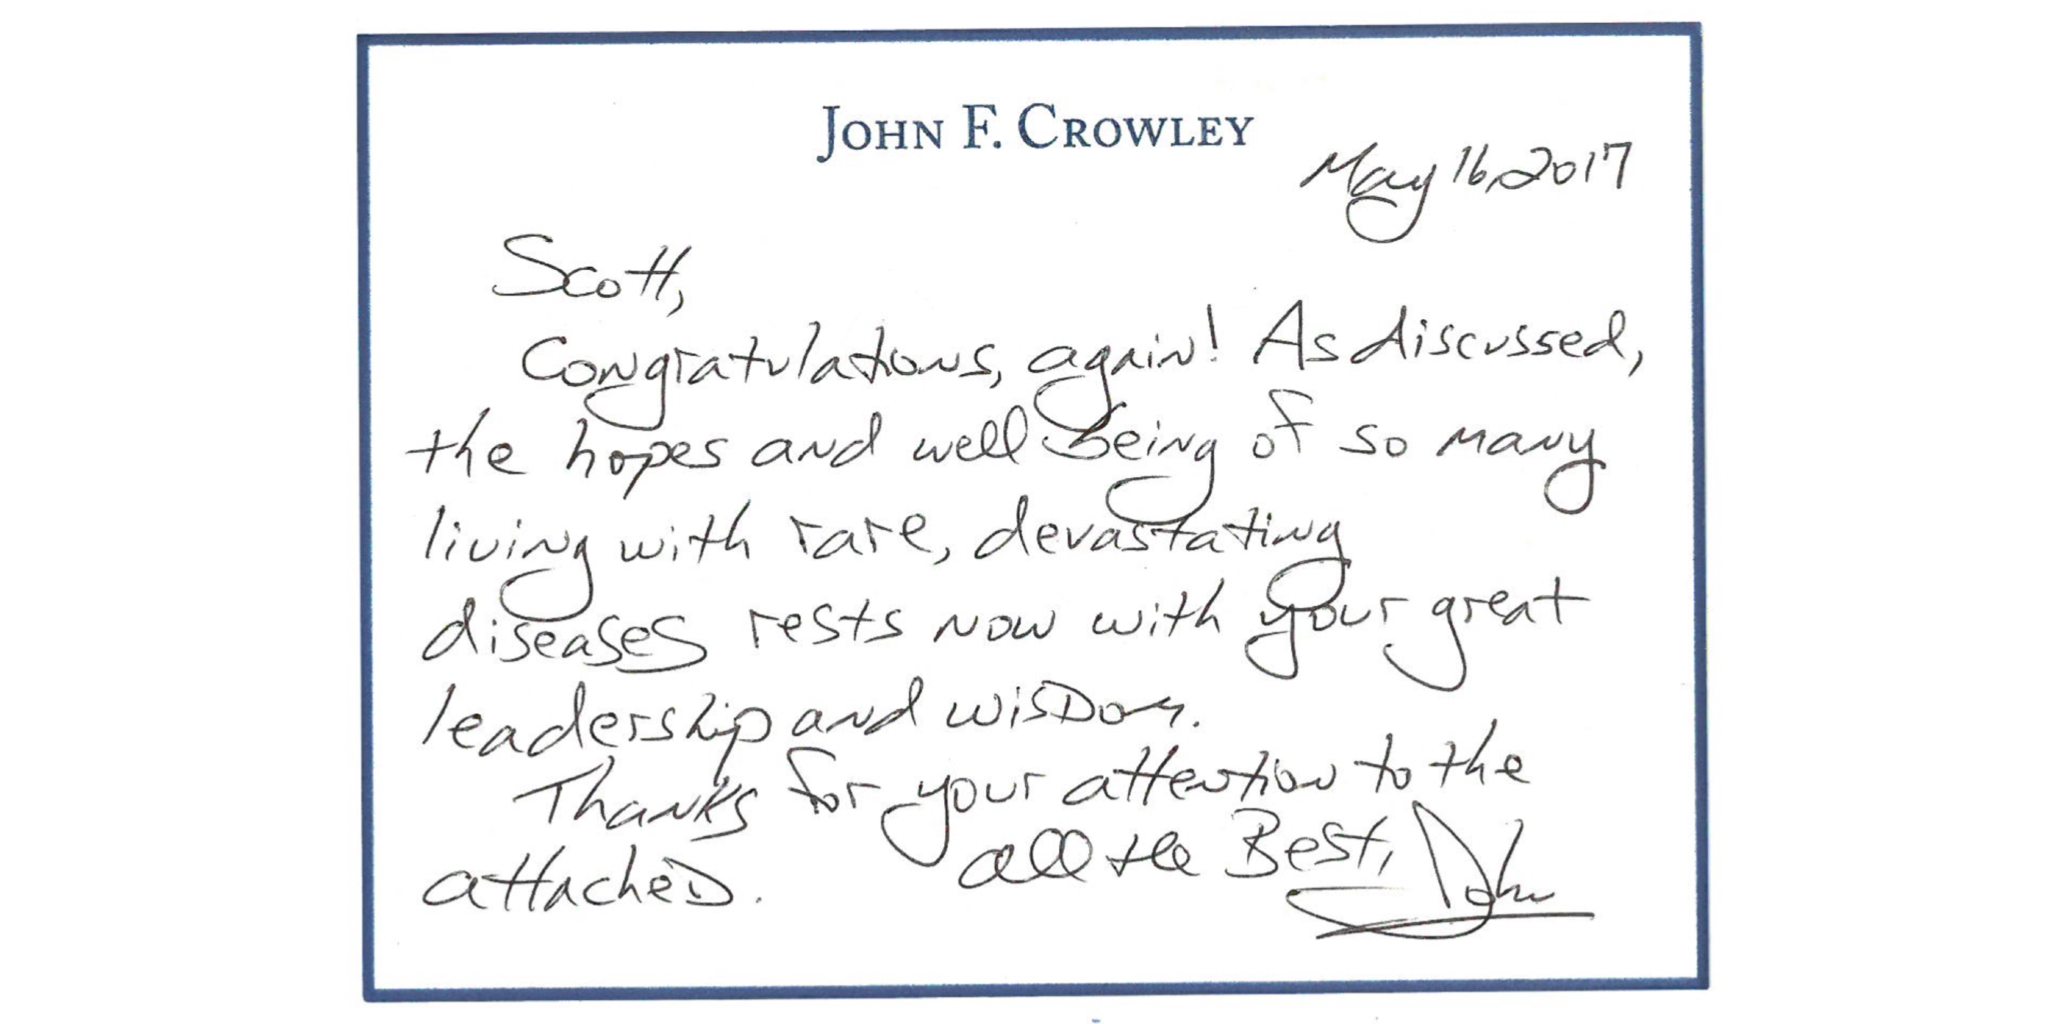 JOHN F. CROWLEY
May 16, 2017
Scott,
Congratulations, again! As discussed,
the hopes and well being of so many
living with rare, devastating
diseases rests now with your great
leadership and wisdom.
Thanks for your attention to the
attached.
all the Best,
John